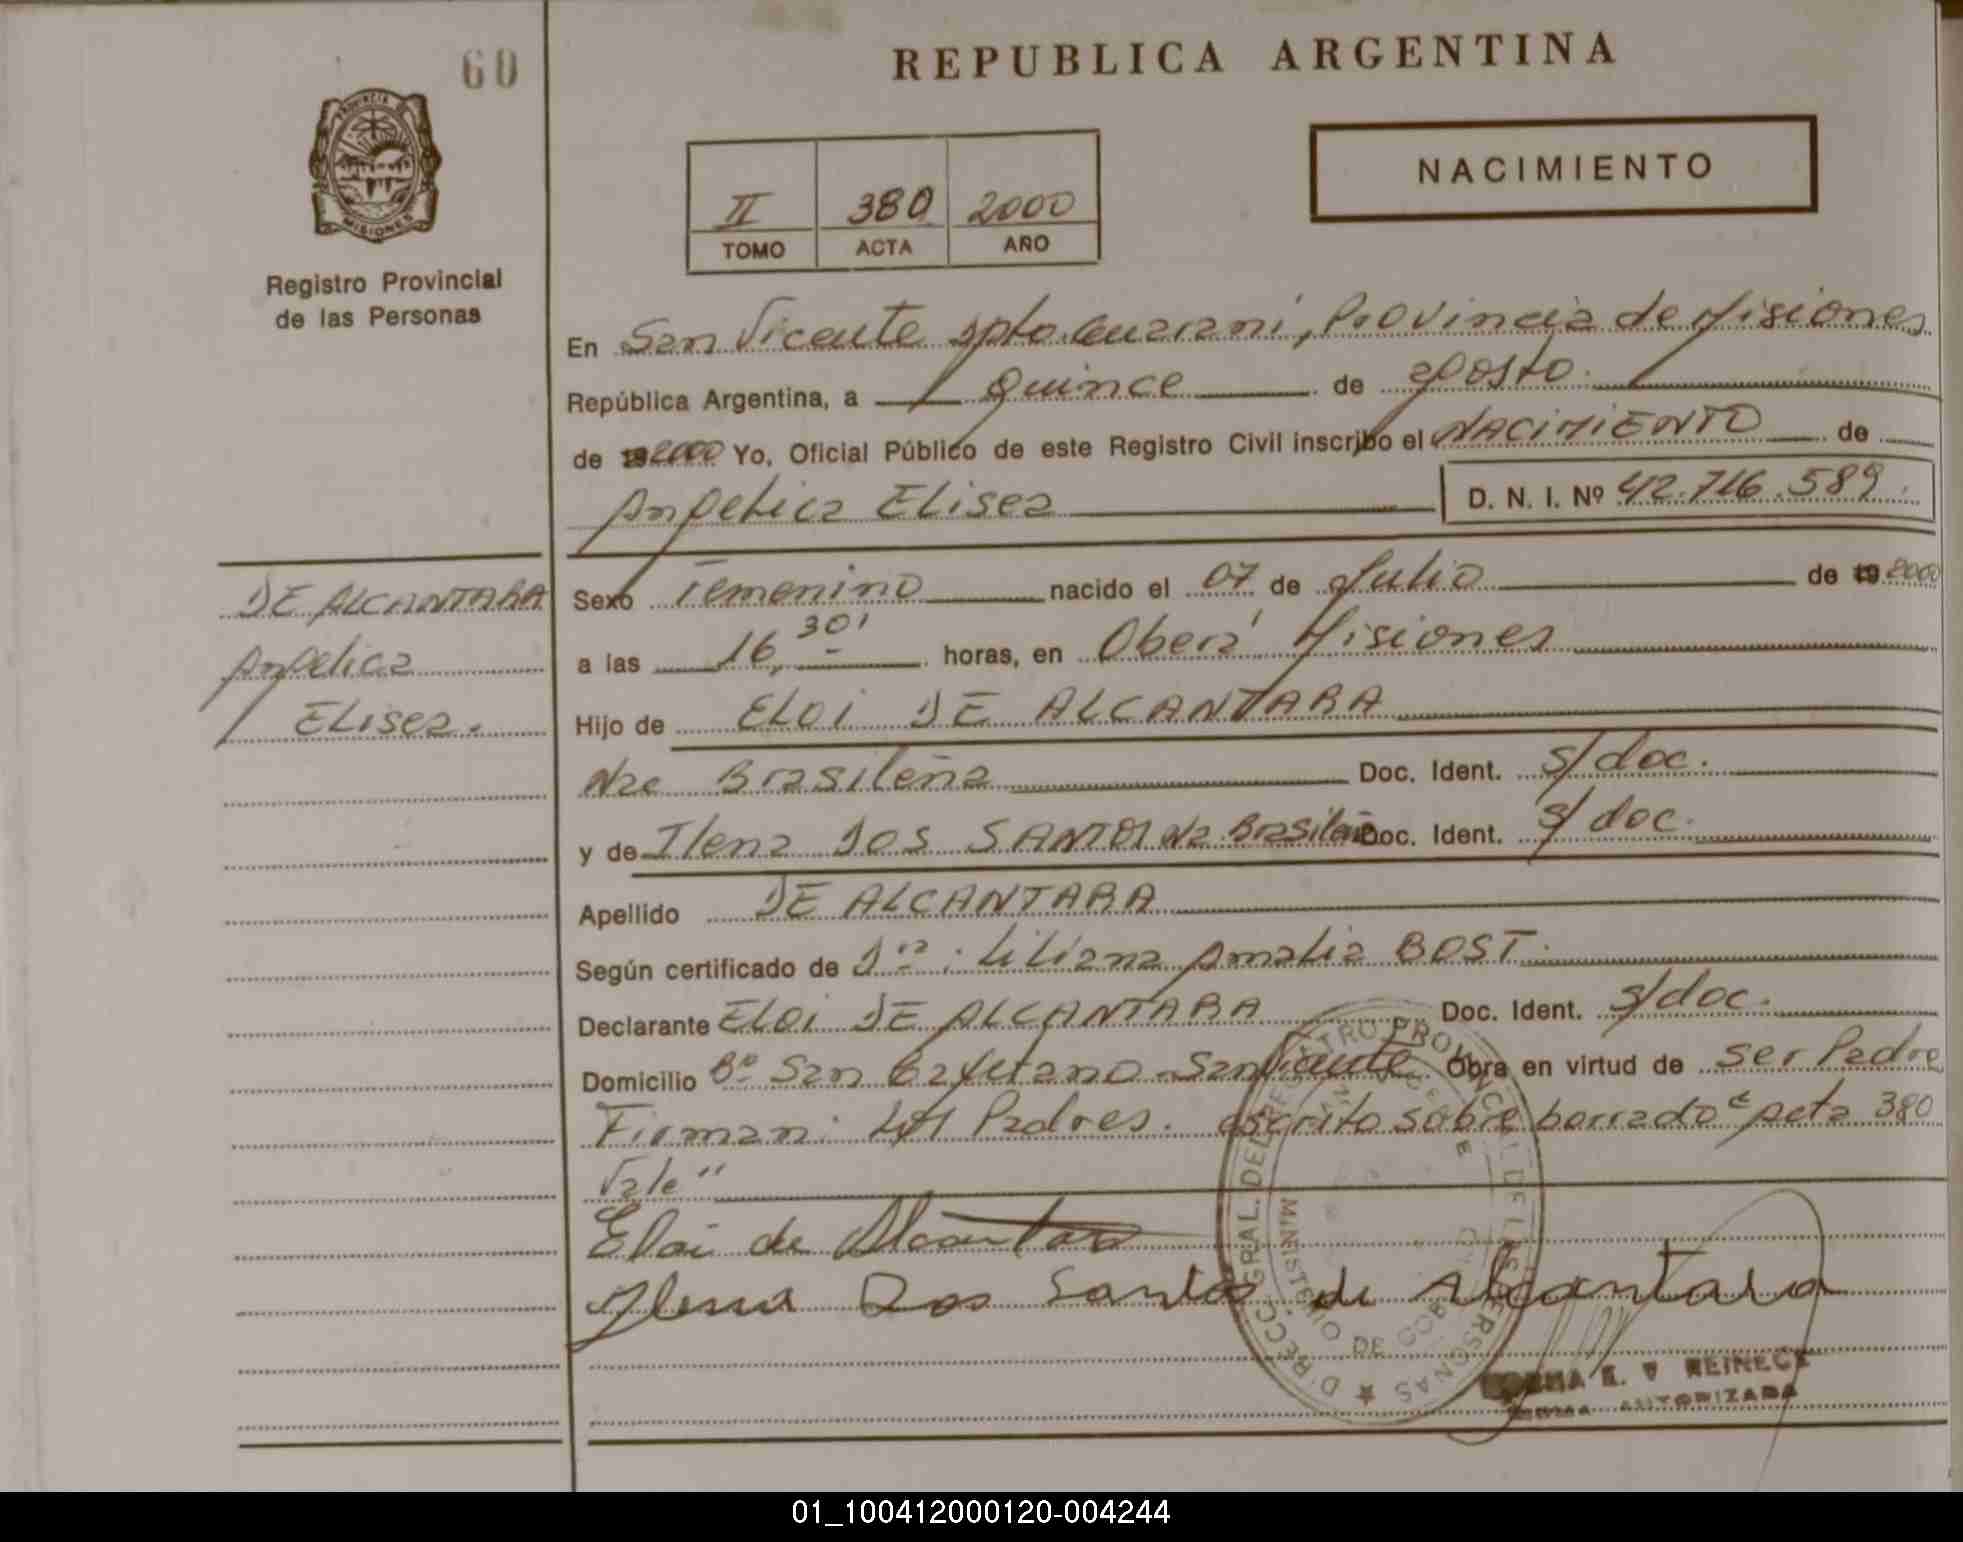 60
REPUBLICA ARGENTINA
PROVINCIA DE MISIONES
NACIMIENTO
II 380 2000
TOMO ACTA AÑO
Registro Provincial
de las Personas
En San Vicente Dpto. Guaraní, Provincia de Misiones
República Argentina, a quince de agosto
de 192000 Yo, Oficial Público de este Registro Civil inscribo el NACIMIENTO de
Angelica Elisea D. N. I. Nº 42.716.589
DE ALCANTARA
Angelica
Elisea.
Sexo Femenino nacido el 07 de Julio de 19 2000
a las 16,30' horas, en Oberá Misiones
Hijo de ELOI DE ALCANTARA
Nac Brasileña Doc. Ident. s/doc.
y de Ilena DOS SANTOS Na. Brasileña Doc. Ident. s/doc.
Apellido DE ALCANTARA
Según certificado de Dra. Liliana Amalia BOST.
Declarante ELOI DE ALCANTARA Doc. Ident. s/doc.
Domicilio Bº San Cayetano - San Vicente Obra en virtud de ser Padre
Firman: Los Padres. escrito sobre borrado "Acta 380
Vale"
Eloi de Alcantara
Ilena Dos Santos de Alcantara
DIRECC. GRAL. DEL REGISTRO PROVINCIAL DE LAS PERSONAS ★
MINISTERIO DE GOB
E. V REINECK
FIRMA AUTORIZADA
01_100412000120-004244